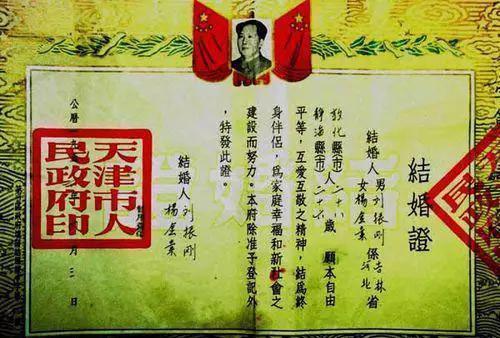 結婚證
結婚人男刘振剛係吉林省
女楊金業河北
敦化縣(市)人二十八歲願本自由
静海縣(市)二十六
平等,互愛互敬之精神,結爲終
身伴侶,爲家庭幸福和新社會之
建設而努力。本府除准予登記外
,特發此證。
結婚人刘振剛
楊金業
公曆一九
月三日
天津市人
民政府印